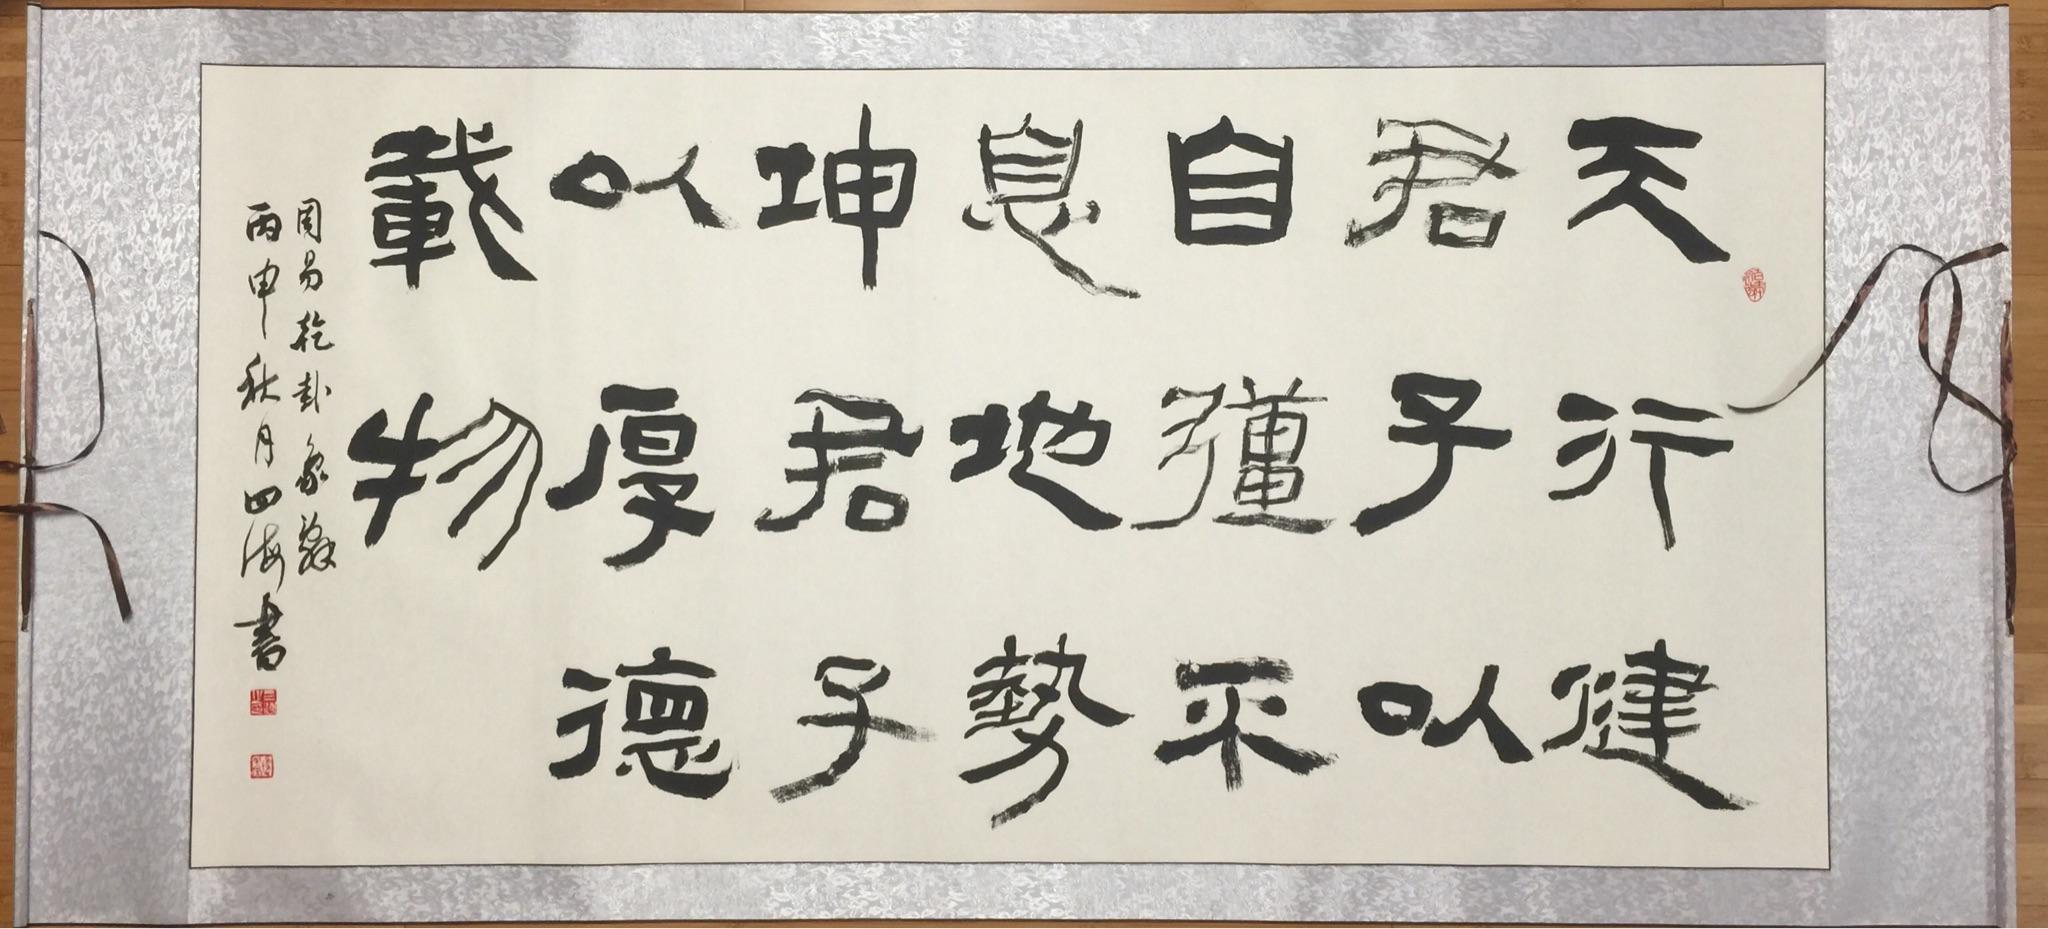 天行健
君子以
自彊不
息地勢
坤君子
以厚德
載物
周易乾卦象辭
丙申秋月四海書